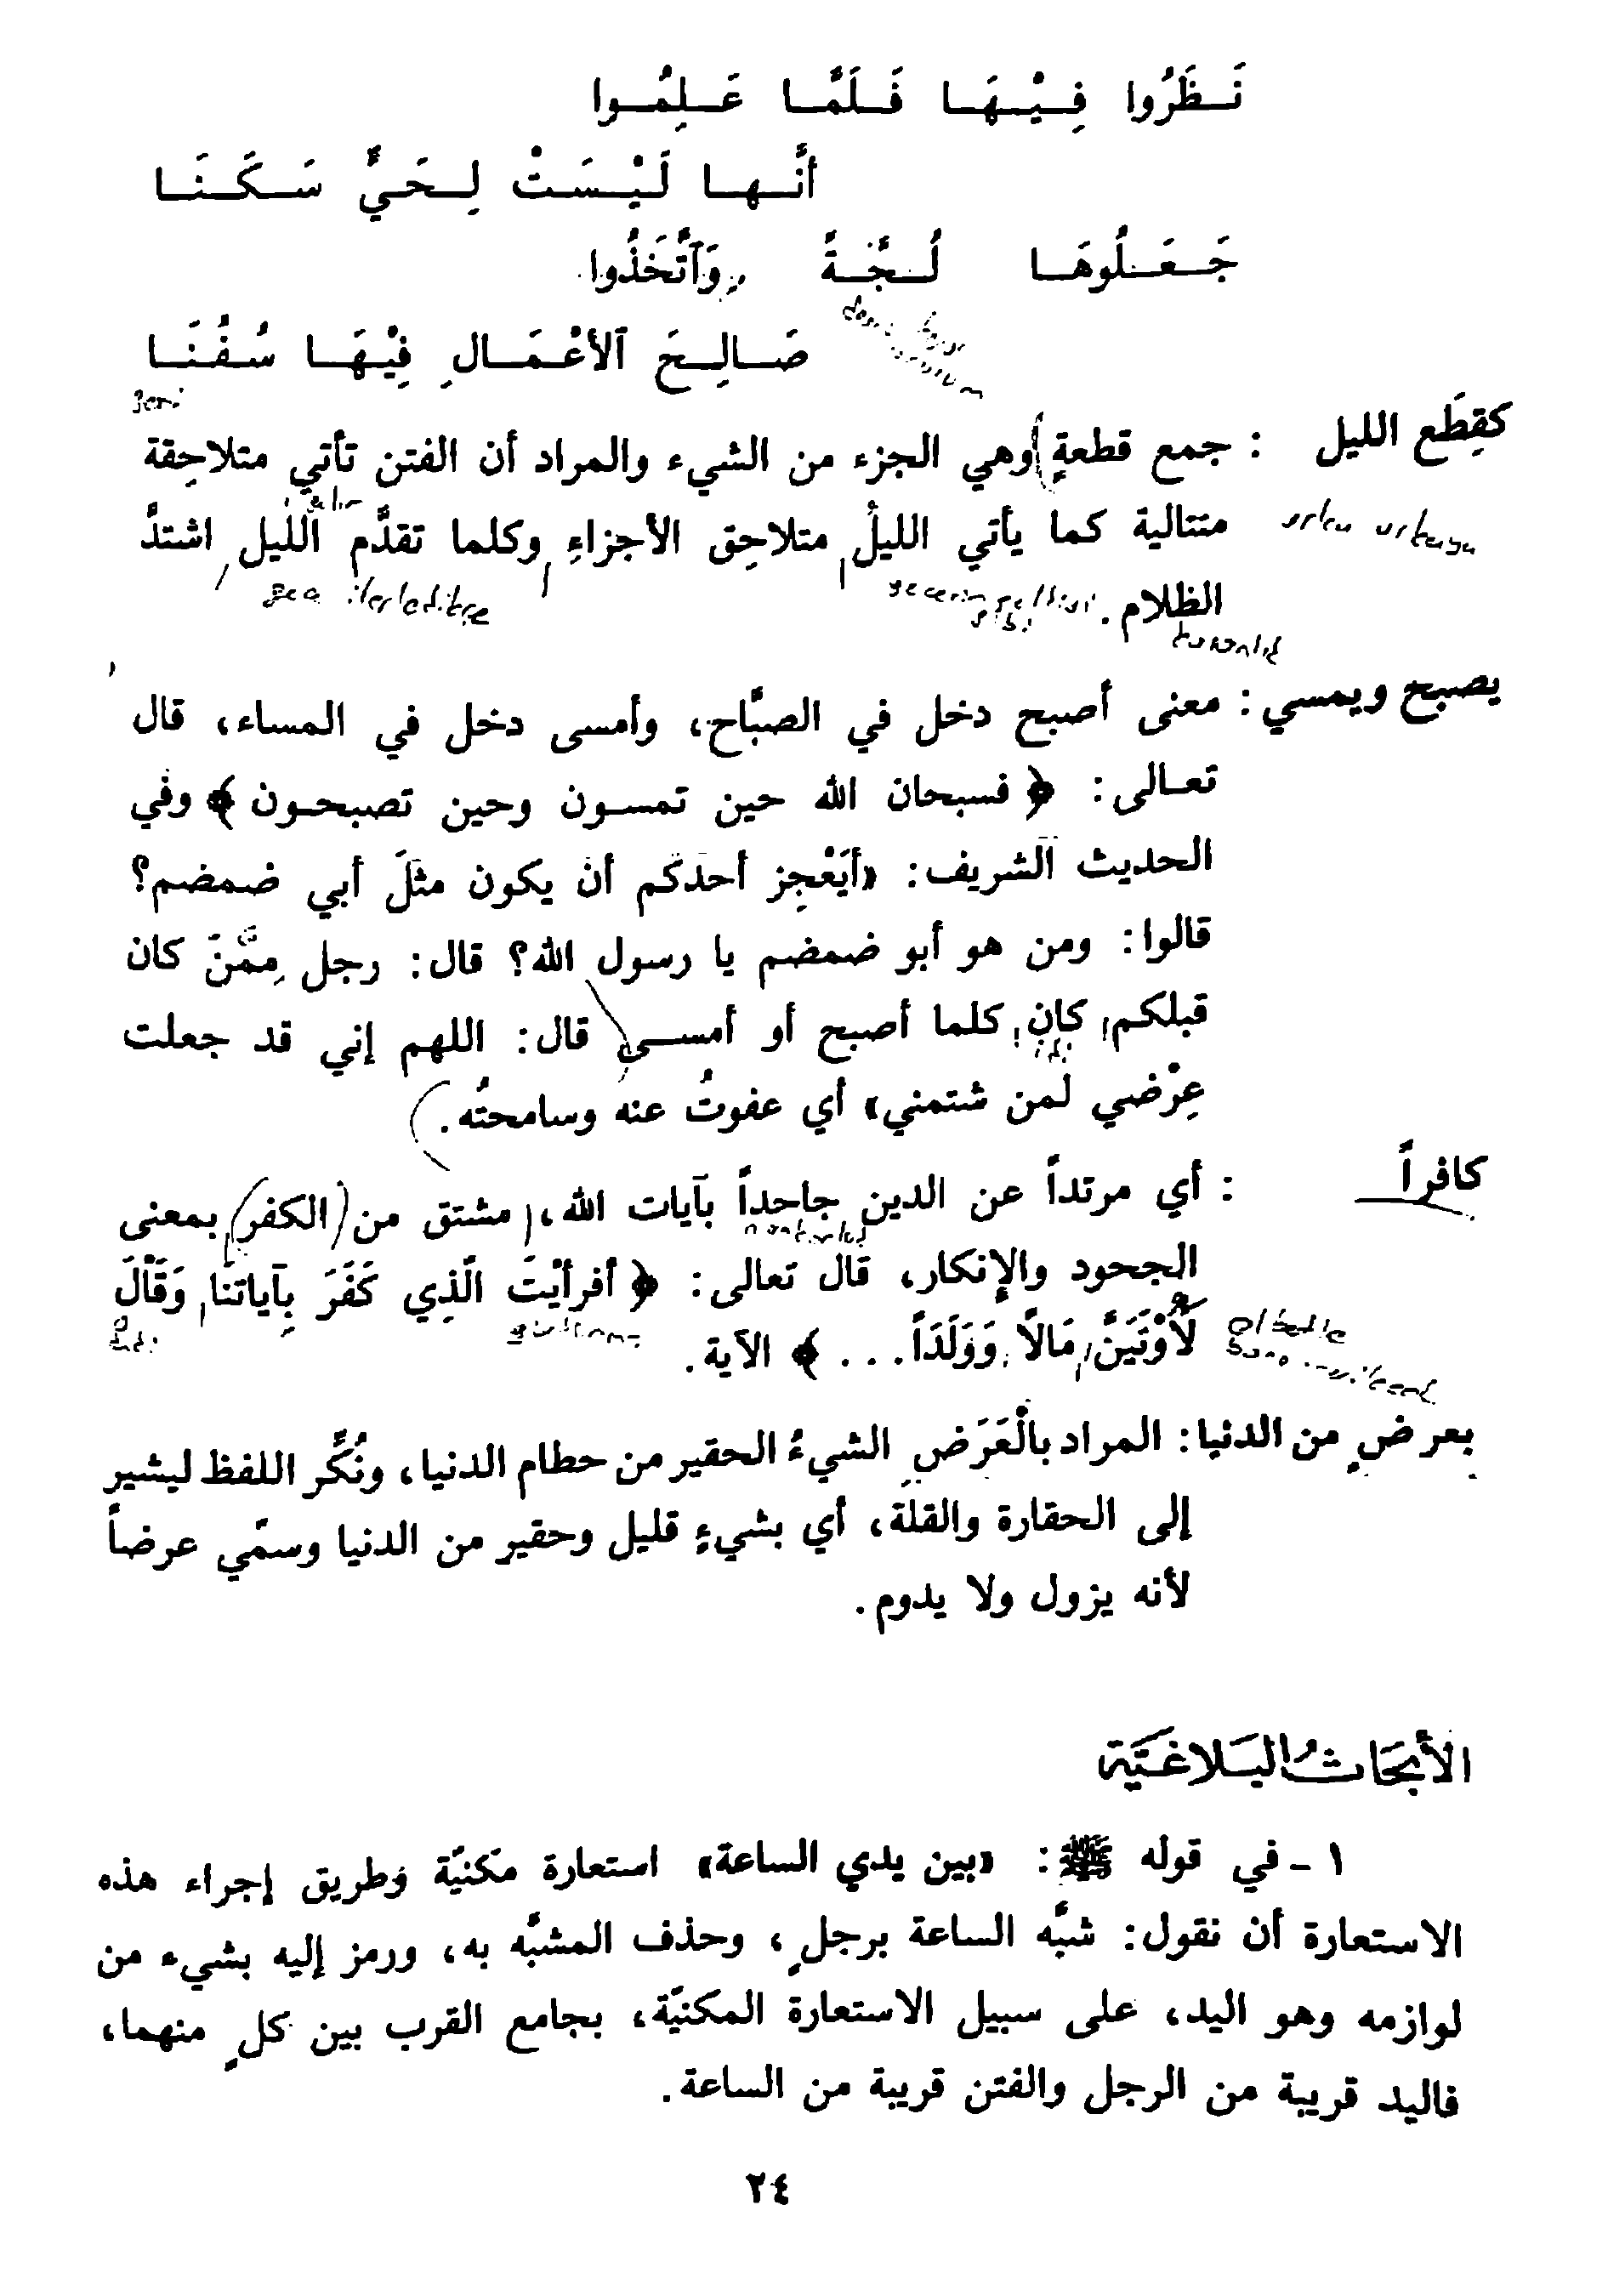 نَـظَرُوا فِـيْـهَـا فَـلَمَّـا عَـلِمُـوا
أنَّـهـا لَـيْـسَـتْ لِـحَـيٍّ سَـكَـنَـا
جَـعَـلُوهَـا لُـجَّـةً وَٱتَّخَذُوا
صَـالِـحَ ٱلأعْـمَـالِ فِيْهَـا سُـفُـنَـا
كقِطَع الليل : جمع قطعةٍ وهي الجزء من الشيء والمراد أن الفتن تأتي متلاحِقة
متتالية كما يأتي الليلُ متلاحِق الأجزاءِ وكلما تقدَّم الليل اشتدَّ
الظلام.
gece ilerledikçe
يصبح ويمسي : معنى أصبح دخل في الصبَّاح، وأمسى دخل في المساء، قال
تعـالى: ﴿ فسبحان الله حين تمسـون وحين تصبحـون ﴾ وفي
الحديث الشريف: «أيَعْجِز أحدَكم أن يكون مثلَ أبي ضمضم؟
قالوا: ومن هو أبو ضمضم يا رسول الله؟ قال: رجل مِمَّنْ كان
قبلكم كان كلما أصبح أو أمسـى قال: اللهم إني قد جعلت
عِرْضي لمن شتمني» أي عفوتُ عنه وسامحتُه.
كافراً : أي مرتداً عن الدين جاحداً بآيات الله، مشتق من (الكفر) بمعنى
الجحود والإنكار، قال تعالى: ﴿ أفرأيْتَ الَّذِي كَفَرَ بِآياتنَا وَقَالَ
لَأُوْتَيَنَّ مَالاً وَوَلَدَاً... ﴾ الآية.
بعرضٍ من الدنيا: المراد بالْعَرَضِ الشيءُ الحقير من حطام الدنيا، ونُكِّر اللفظ ليشير
إلى الحقارة والقلة، أي بشيءٍ قليل وحقير من الدنيا وسمّي عرضاً
لأنه يزول ولا يدوم.
الأبحَاثُ البَلاغيَّة
١ - في قوله ﷺ: «بين يدي الساعة» استعارة مكنيّة وطريق إجراء هذه
الاستعارة أن نقول: شبَّه الساعة برجلٍ، وحذف المشبَّه به، ورمز إليه بشيء من
لوازمه وهو اليد، على سبيل الاستعارة المكنيّة، بجامع القرب بين كلٍ منهما،
فاليد قريبة من الرجل والفتن قريبة من الساعة.
٢٤